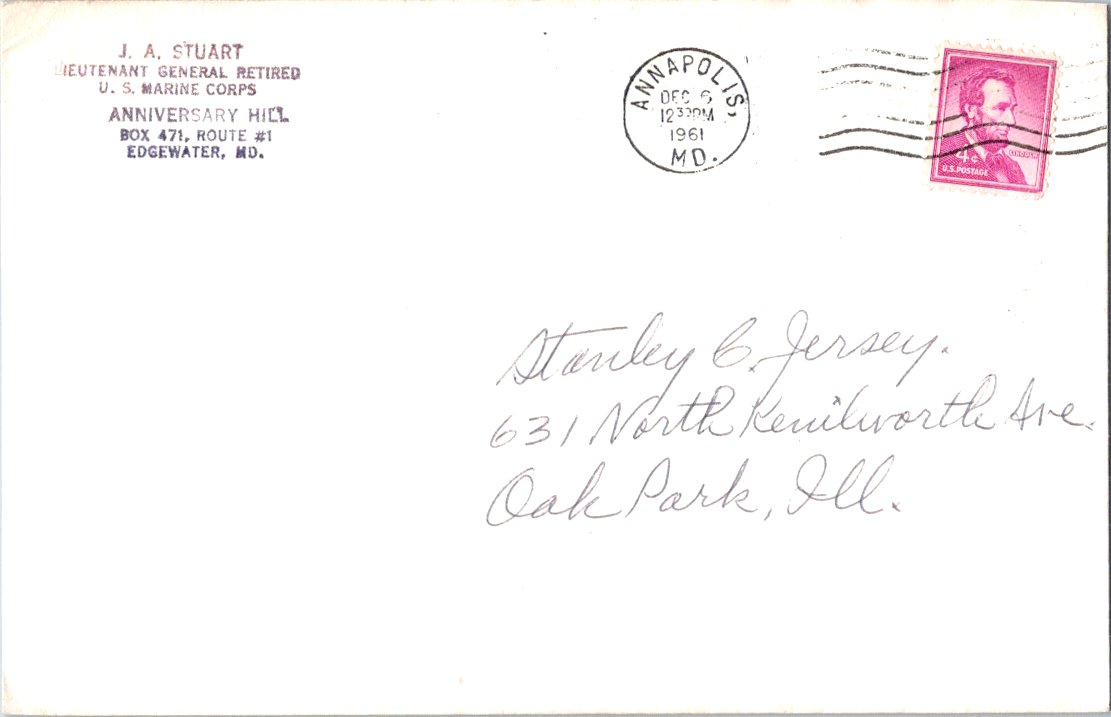 J. A. STUART
LIEUTENANT GENERAL RETIRED
U. S. MARINE CORPS
ANNIVERSARY HILL
BOX 471, ROUTE #1
EDGEWATER, MD.
ANNAPOLIS,
DEC 6
12 30 PM
1961
MD.
4¢
LINCOLN
U.S. POSTAGE
Stanley C. Jersey.
631 North Kenilworth Ave.
Oak Park, Ill.